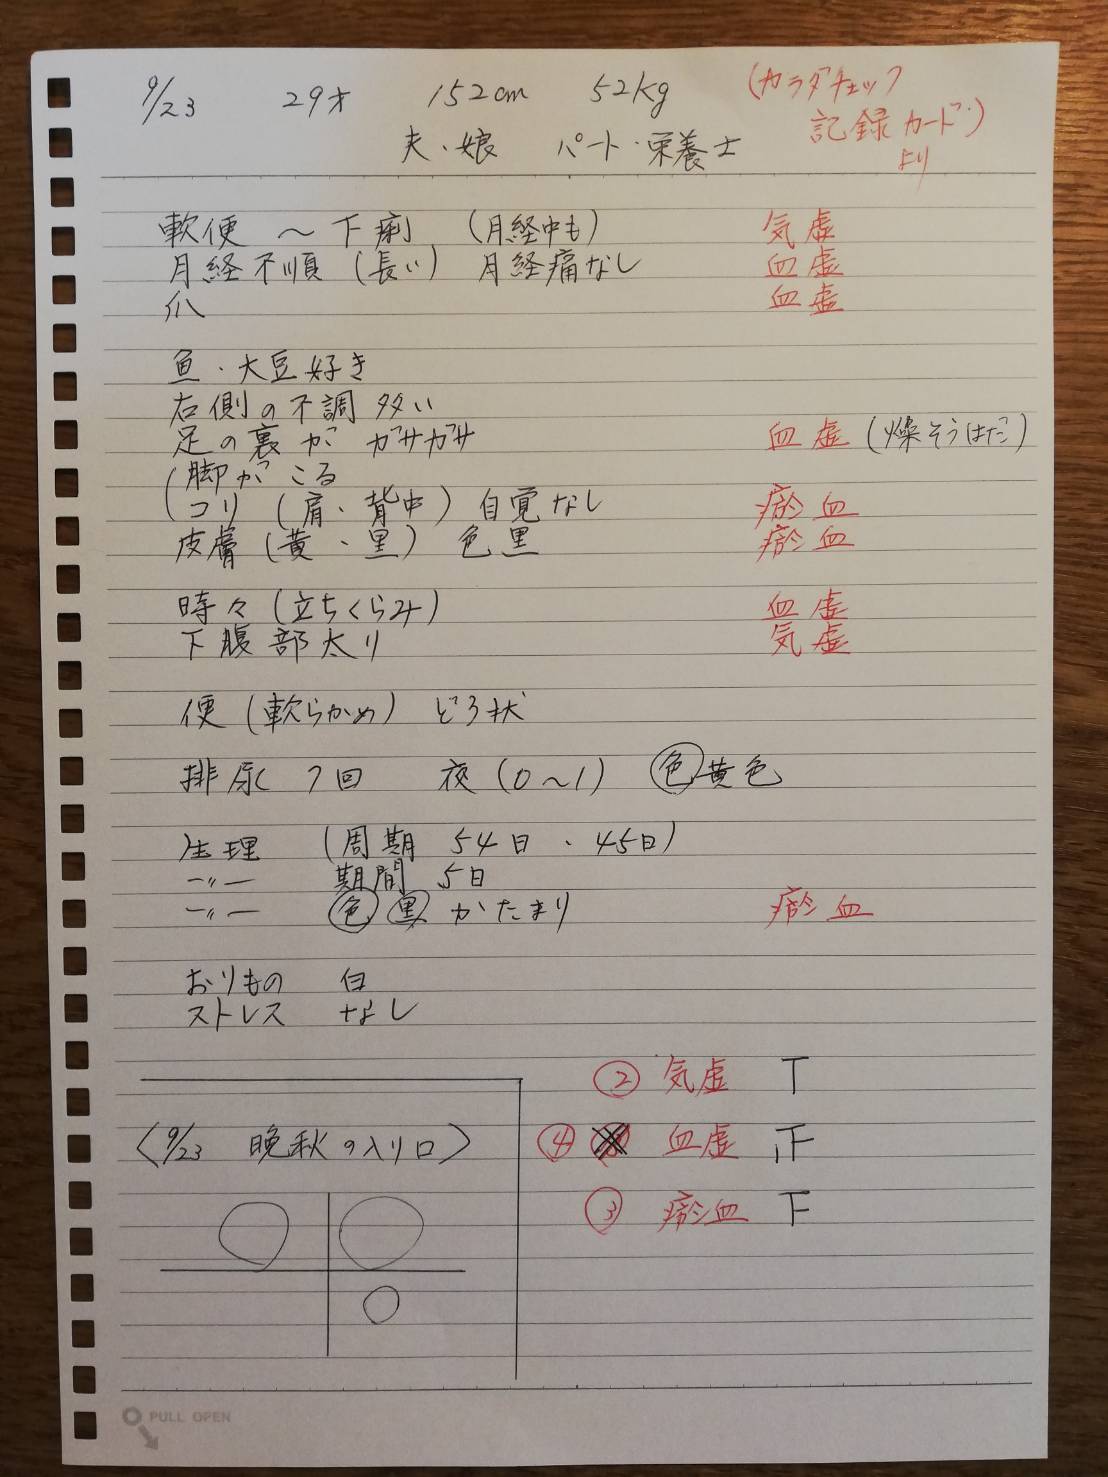 9/23 29才 152cm 52kg (カラダチェック
記録カード)
より
夫・娘 パート・栄養士
軟便 〜 下痢 (月経中も) 気虚
月経不順 (長い) 月経痛なし 血虚
爪 血虚
魚・大豆好き
右側の不調 多い
足の裏が ガサガサ 血虚 (燥そうはだ)
(脚がこる
(コリ (肩・背中) 自覚なし 瘀血
皮膚 (黄・黒) 色黒 瘀血
時々 (立ちくらみ) 血虚
下腹部太り 気虚
便 (軟らかめ) どろ状
排尿 7回 夜 (0〜1) 色 黄色
生理 (周期 54日・45日)
〃 期間 5日
〃 色 黒 かたまり 瘀血
おりもの 白
ストレス なし
② 気虚 T
〈9/23 晩秋の入り口〉
④ 血虚 正
③ 瘀血 下
PULL OPEN